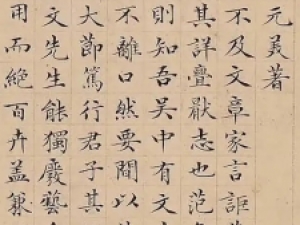 元美著
不及文章家言詎
其詳疊厭志也范
則知吾吳中有文
不離口然要間以
大節篤行君子其
文先生能獨廢藝
用而絕百卉蓋兼